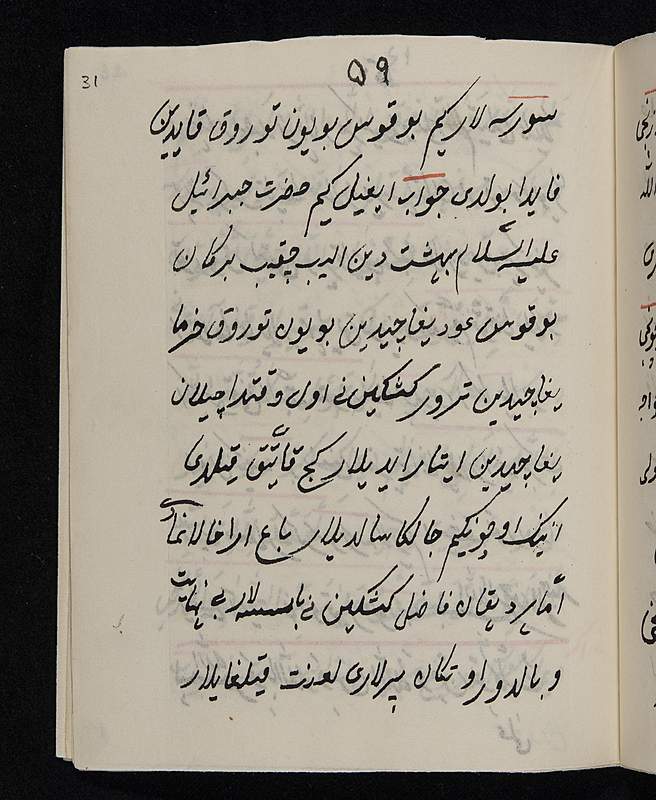 31
۵۹
سورسه لار کیم بو قوس بویون توروق قایدین
فایدا بولدی جواب ایغیل کیم حضرت جبرائیل
علیه السّلام بهشت دین الیب چقیب برکان
بو قوس عود یغاجیدین بویون توروق خرما
یغاجیدین تمور کشکین نی اول وقتدا جیلان
یغاجیدین ایتار ایدیلار کج قاتّیق قیلدی
انینک اوچونکیم جالکا سالدیلار باغ ارا خالانماّ
امّا هر دیقان فاضل کشکین نی بی نهایت
و بالدور اوتکان پیرلاری لعنت قیلغایلار